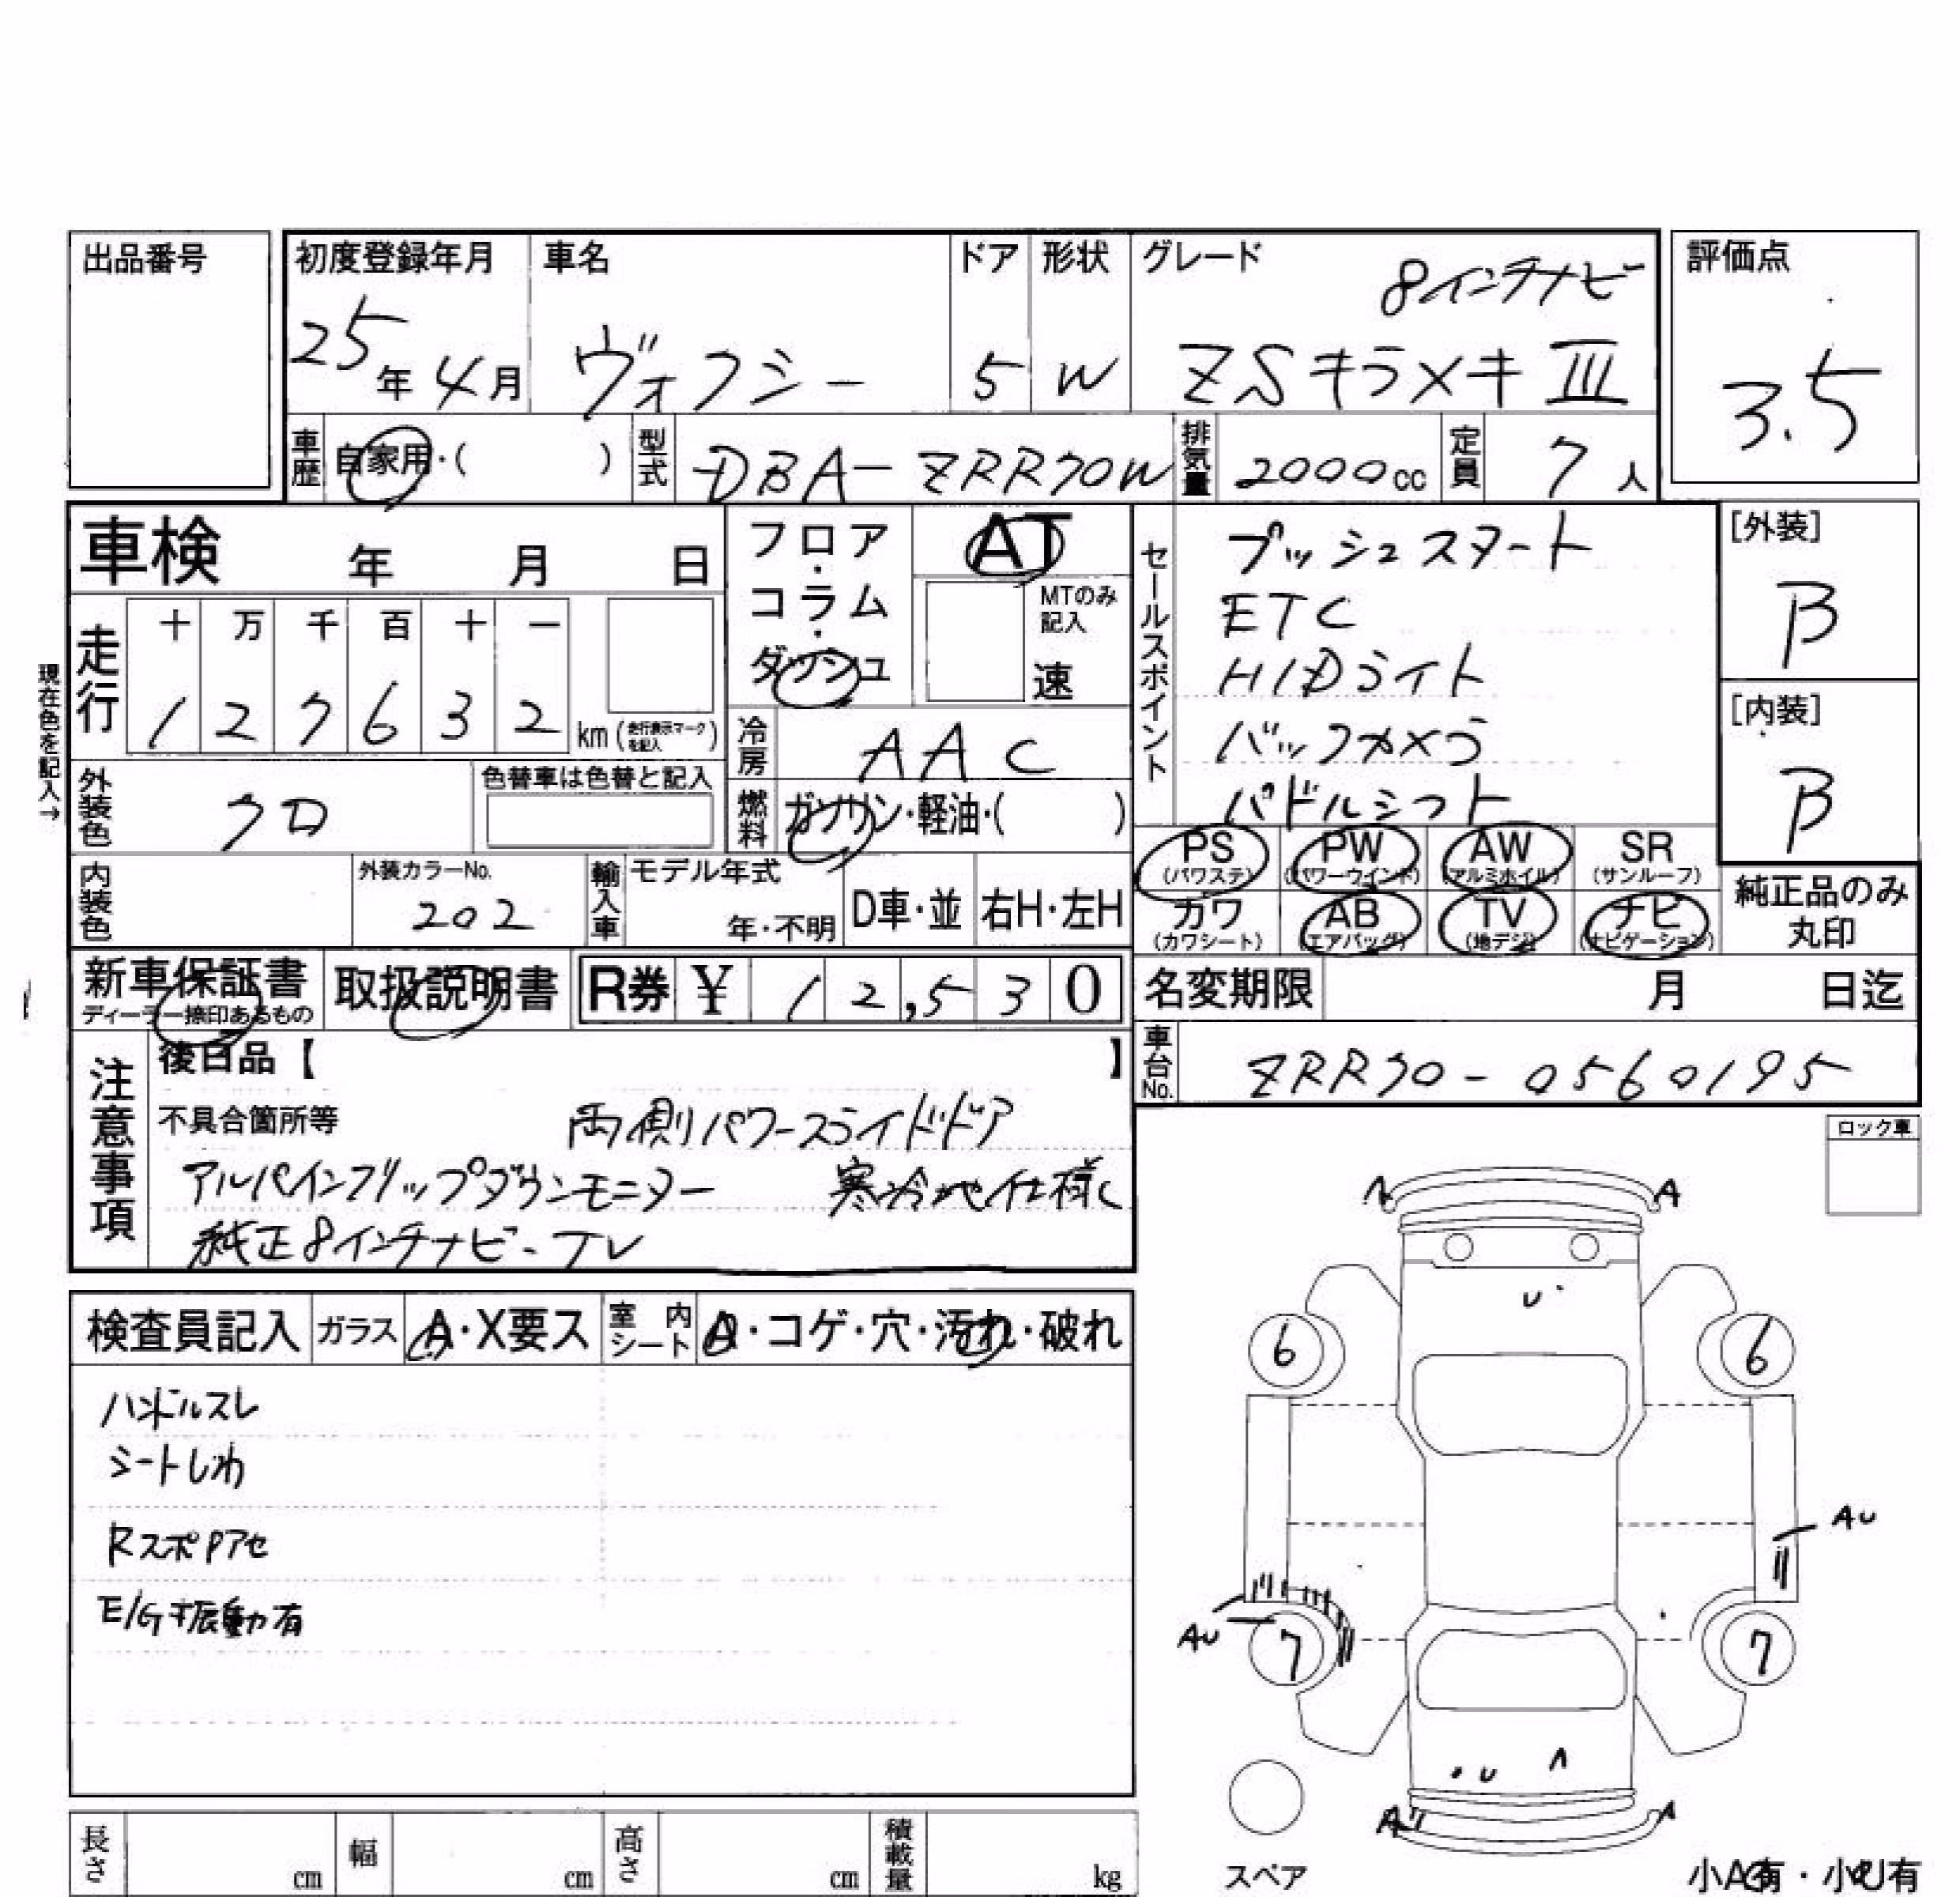 出品番号
初度登録年月 車名 ドア 形状 グレード 評価点
8インチナビ
25年4月 ヴォクシー 5 W ZSキラメキⅢ 3.5
車歴 自家用・( ) 型式 DBA-ZRR70W 排気量 2000cc 定員 7人
車検 年 月 日
フロア・コラム・ダッシュ AT
MTのみ記入 速
現在色を記入→
走行 十 万 千 百 十 一
1 2 7 6 3 2 km(走行表示マークを記入)
冷房 AAC
燃料 ガソリン・軽油・( )
外装色 クロ 色替車は色替と記入
内装色 外装カラーNo. 202 輸入車 モデル年式 年・不明 D車・並 右H・左H
セールスポイント
プッシュスタート
ETC
HIDライト
バックカメラ
パドルシフト
[外装]
B
[内装]
B
PS(パワステ) PW(パワーウインド) AW(アルミホイル) SR(サンルーフ)
カワ(カワシート) AB(エアバッグ) TV(地デジ) ナビ(ナビゲーション)
純正品のみ丸印
新車保証書 ディーラー捺印あるもの 取扱説明書 R券 ¥ 12,530
名変期限 月 日迄
車台No. ZRR70-0560195
注意事項
後日品【 】
不具合箇所等 両側パワースライドドア
アルパインフリップダウンモニター 寒冷地仕様
純正8インチナビ-TV
ロック車
検査員記入 ガラス A・X要ス 室内シート A・コゲ・穴・汚れ・破れ
ハンドルスレ
シートしわ
RスポPアセ
E/G振動有
A A
U
6 6
AU
AU
7 7
U A
A A
スペア
小A有・小U有
長さ cm 幅 cm 高さ cm 積載量 kg